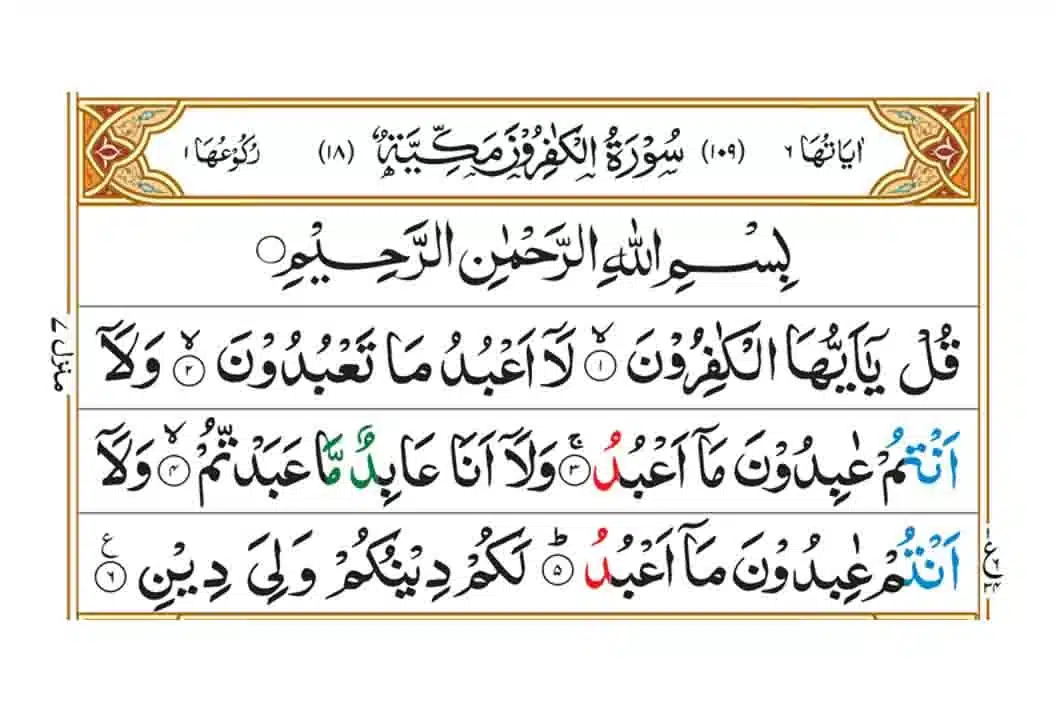 اٰيَاتُهَا ٦ (١٠٩) سُوْرَةُ الْكٰفِرُوْنَ مَكِّيَّةٌ (١٨) رُكُوْعُهَا ١
بِسْمِ اللّٰهِ الرَّحْمٰنِ الرَّحِيْمِ
قُلْ يٰۤاَيُّهَا الْكٰفِرُوْنَ ۙ﴿١﴾ لَاۤ اَعْبُدُ مَا تَعْبُدُوْنَ ۙ﴿٢﴾ وَلَاۤ
اَنْتُمْ عٰبِدُوْنَ مَاۤ اَعْبُدُ ۚ﴿٣﴾ وَلَاۤ اَنَا عَابِدٌ مَّا عَبَدْتُّمْ ۙ﴿٤﴾ وَلَاۤ
اَنْتُمْ عٰبِدُوْنَ مَاۤ اَعْبُدُ ؕ﴿٥﴾ لَكُمْ دِيْنُكُمْ وَلِىَ دِيْنِ ﴿٦﴾ ع
منزل ٧
ع ٦ ٣٤